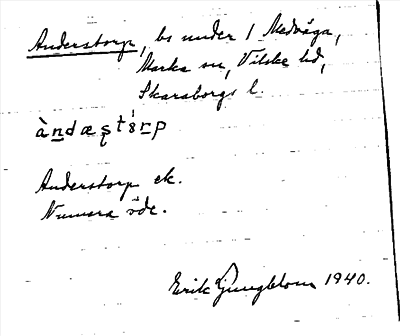 Anderstorp, bs under 1 Medvåga,
Marka sn, Vilske hd,
Skaraborgs l.
àndæst
Anderstorp ek.
Numera öde.
Erik Ljungblom 1940.